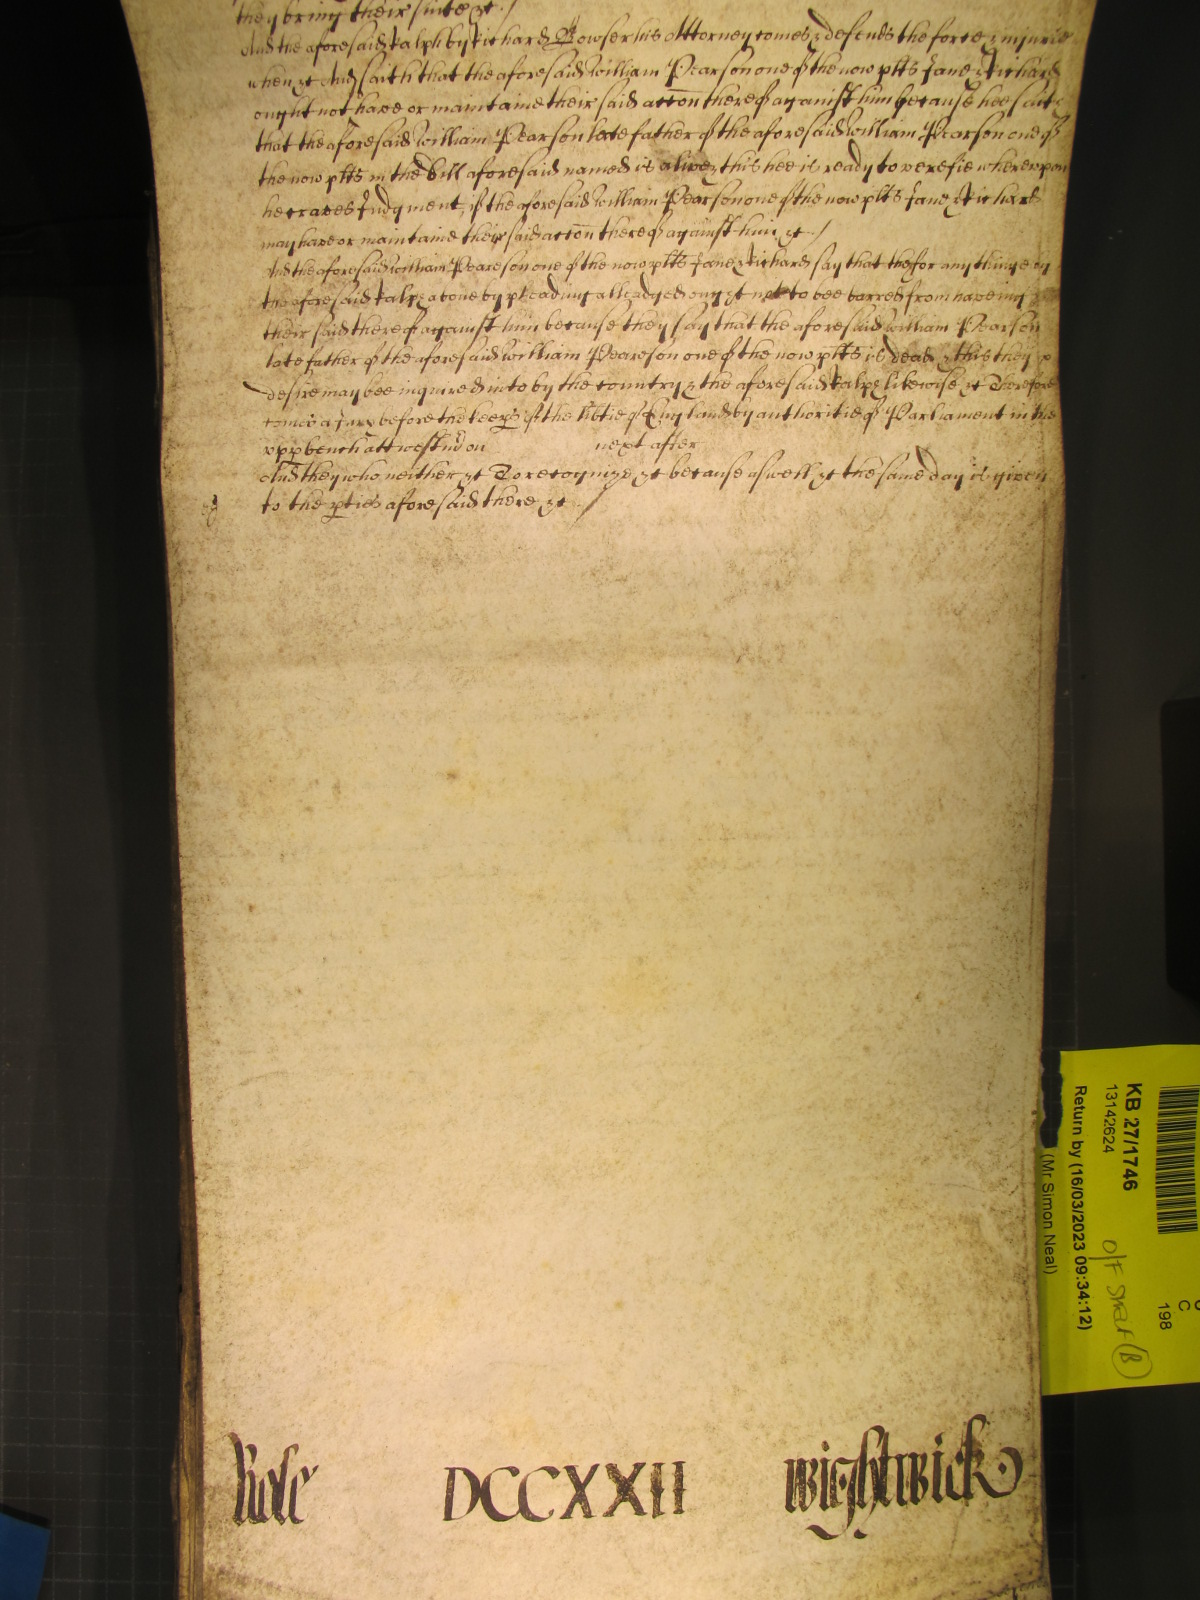 they bring their suite &c /
And the aforesaid Ralph by Richard Bowser his Attorney comes & defends the force & injurie
when &c And saith that the aforesaid William Pearson one of the now pltts Jane & Richard
ought not have or maintaine their said accon thereof against him because hee saith
that the aforesaid William Pearson late father of the aforesaid William Pearson one of
the now pltts in the bill aforesaid named is alive & this hee is ready to verefie whereupon
he craves Judgment if the aforesaid William Pearson one of the now pltts Jane & Richard
may have or maintaine their said accon thereof against him &c /
And the aforesaid William Peareson one of the now pltts Jane & Richard say that the for any thinge by
the aforesaid Ralph above by pleading alleadged ought not to bee barred from haveing
their said thereof against him because they say that the aforesaid William Pearson
late father of the aforesaid William Peareson one of the now pltts is dead & this they p
desire may bee inquired into by the country & the aforesaid Ralph likewise &c Therefore
come a Jury before the keeps of the libtie of England by authoritie of Parliament in the
upp bench att westm on next after
And they who neither &c To recognize &c because aswell &c the same day is given
to the pties aforesaid there &c /
Role DCCXXII Wightwick
KB 27/1746
13142624
Return by (16/03/2023 09:34:12)
(Mr Simon Neal)
O/F
C
198